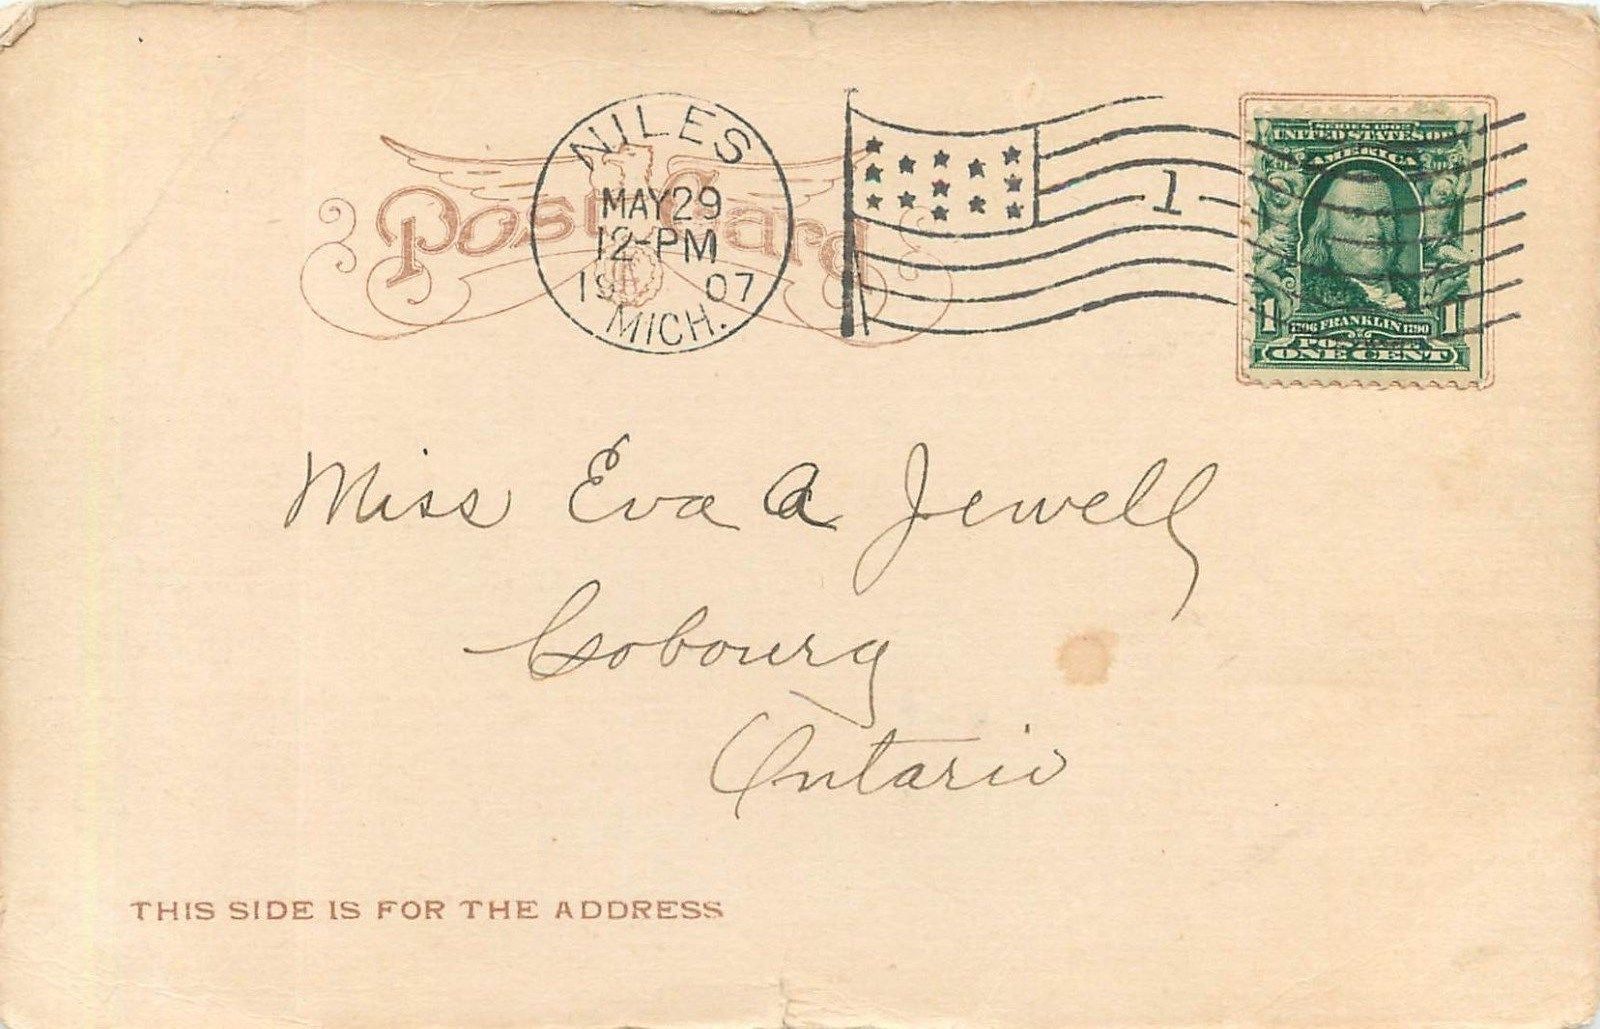 Post Card
NILES
MAY 29
12-PM
19 07
MICH.
1
SERIES 1902
UNITED STATES OF
AMERICA
1 1
1706 FRANKLIN 1790
POSTAGE
ONE CENT
Miss Eva A Jewell
Cobourg
Ontario
THIS SIDE IS FOR THE ADDRESS